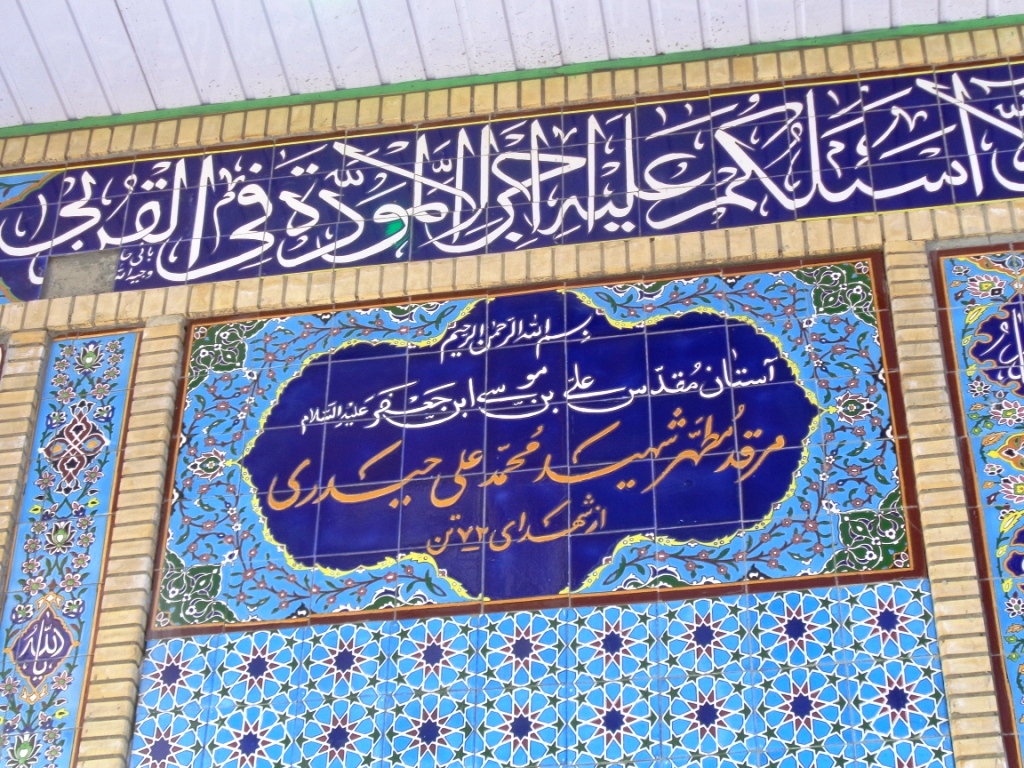 لا اسئلکم علیه اجرا الا المودة فی القربی
بانی
بسم الله الرحمن الرحیم
آستان مقدّس علیّ بن موسی ابن جعفر علیه السّلام
مرقد مطهّر شهید محمّد علی حیدری
از شهدای ۷۲ تن
یا الله